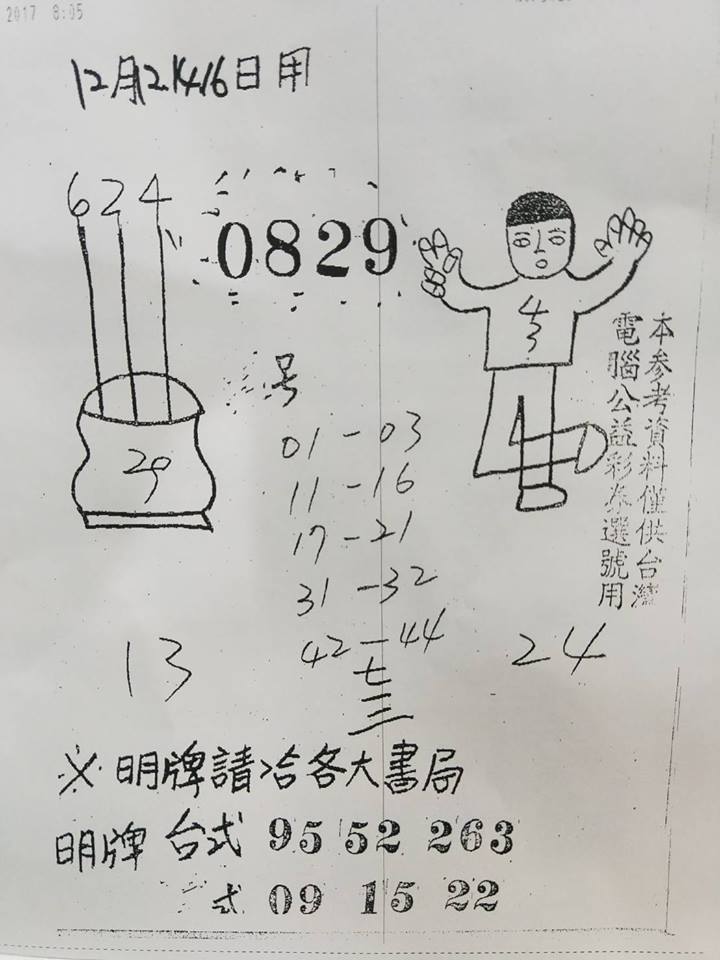 2017 8:05
12月12.14.16日用
624
0829
29
号
01-03
11-16
17-21
31-32
42-44
七
三
13
24
本参考資料僅供台灣
電腦公益彩券選號用
※明牌請洽各大書局
明牌 台式 95 52 263
式 09 15 22